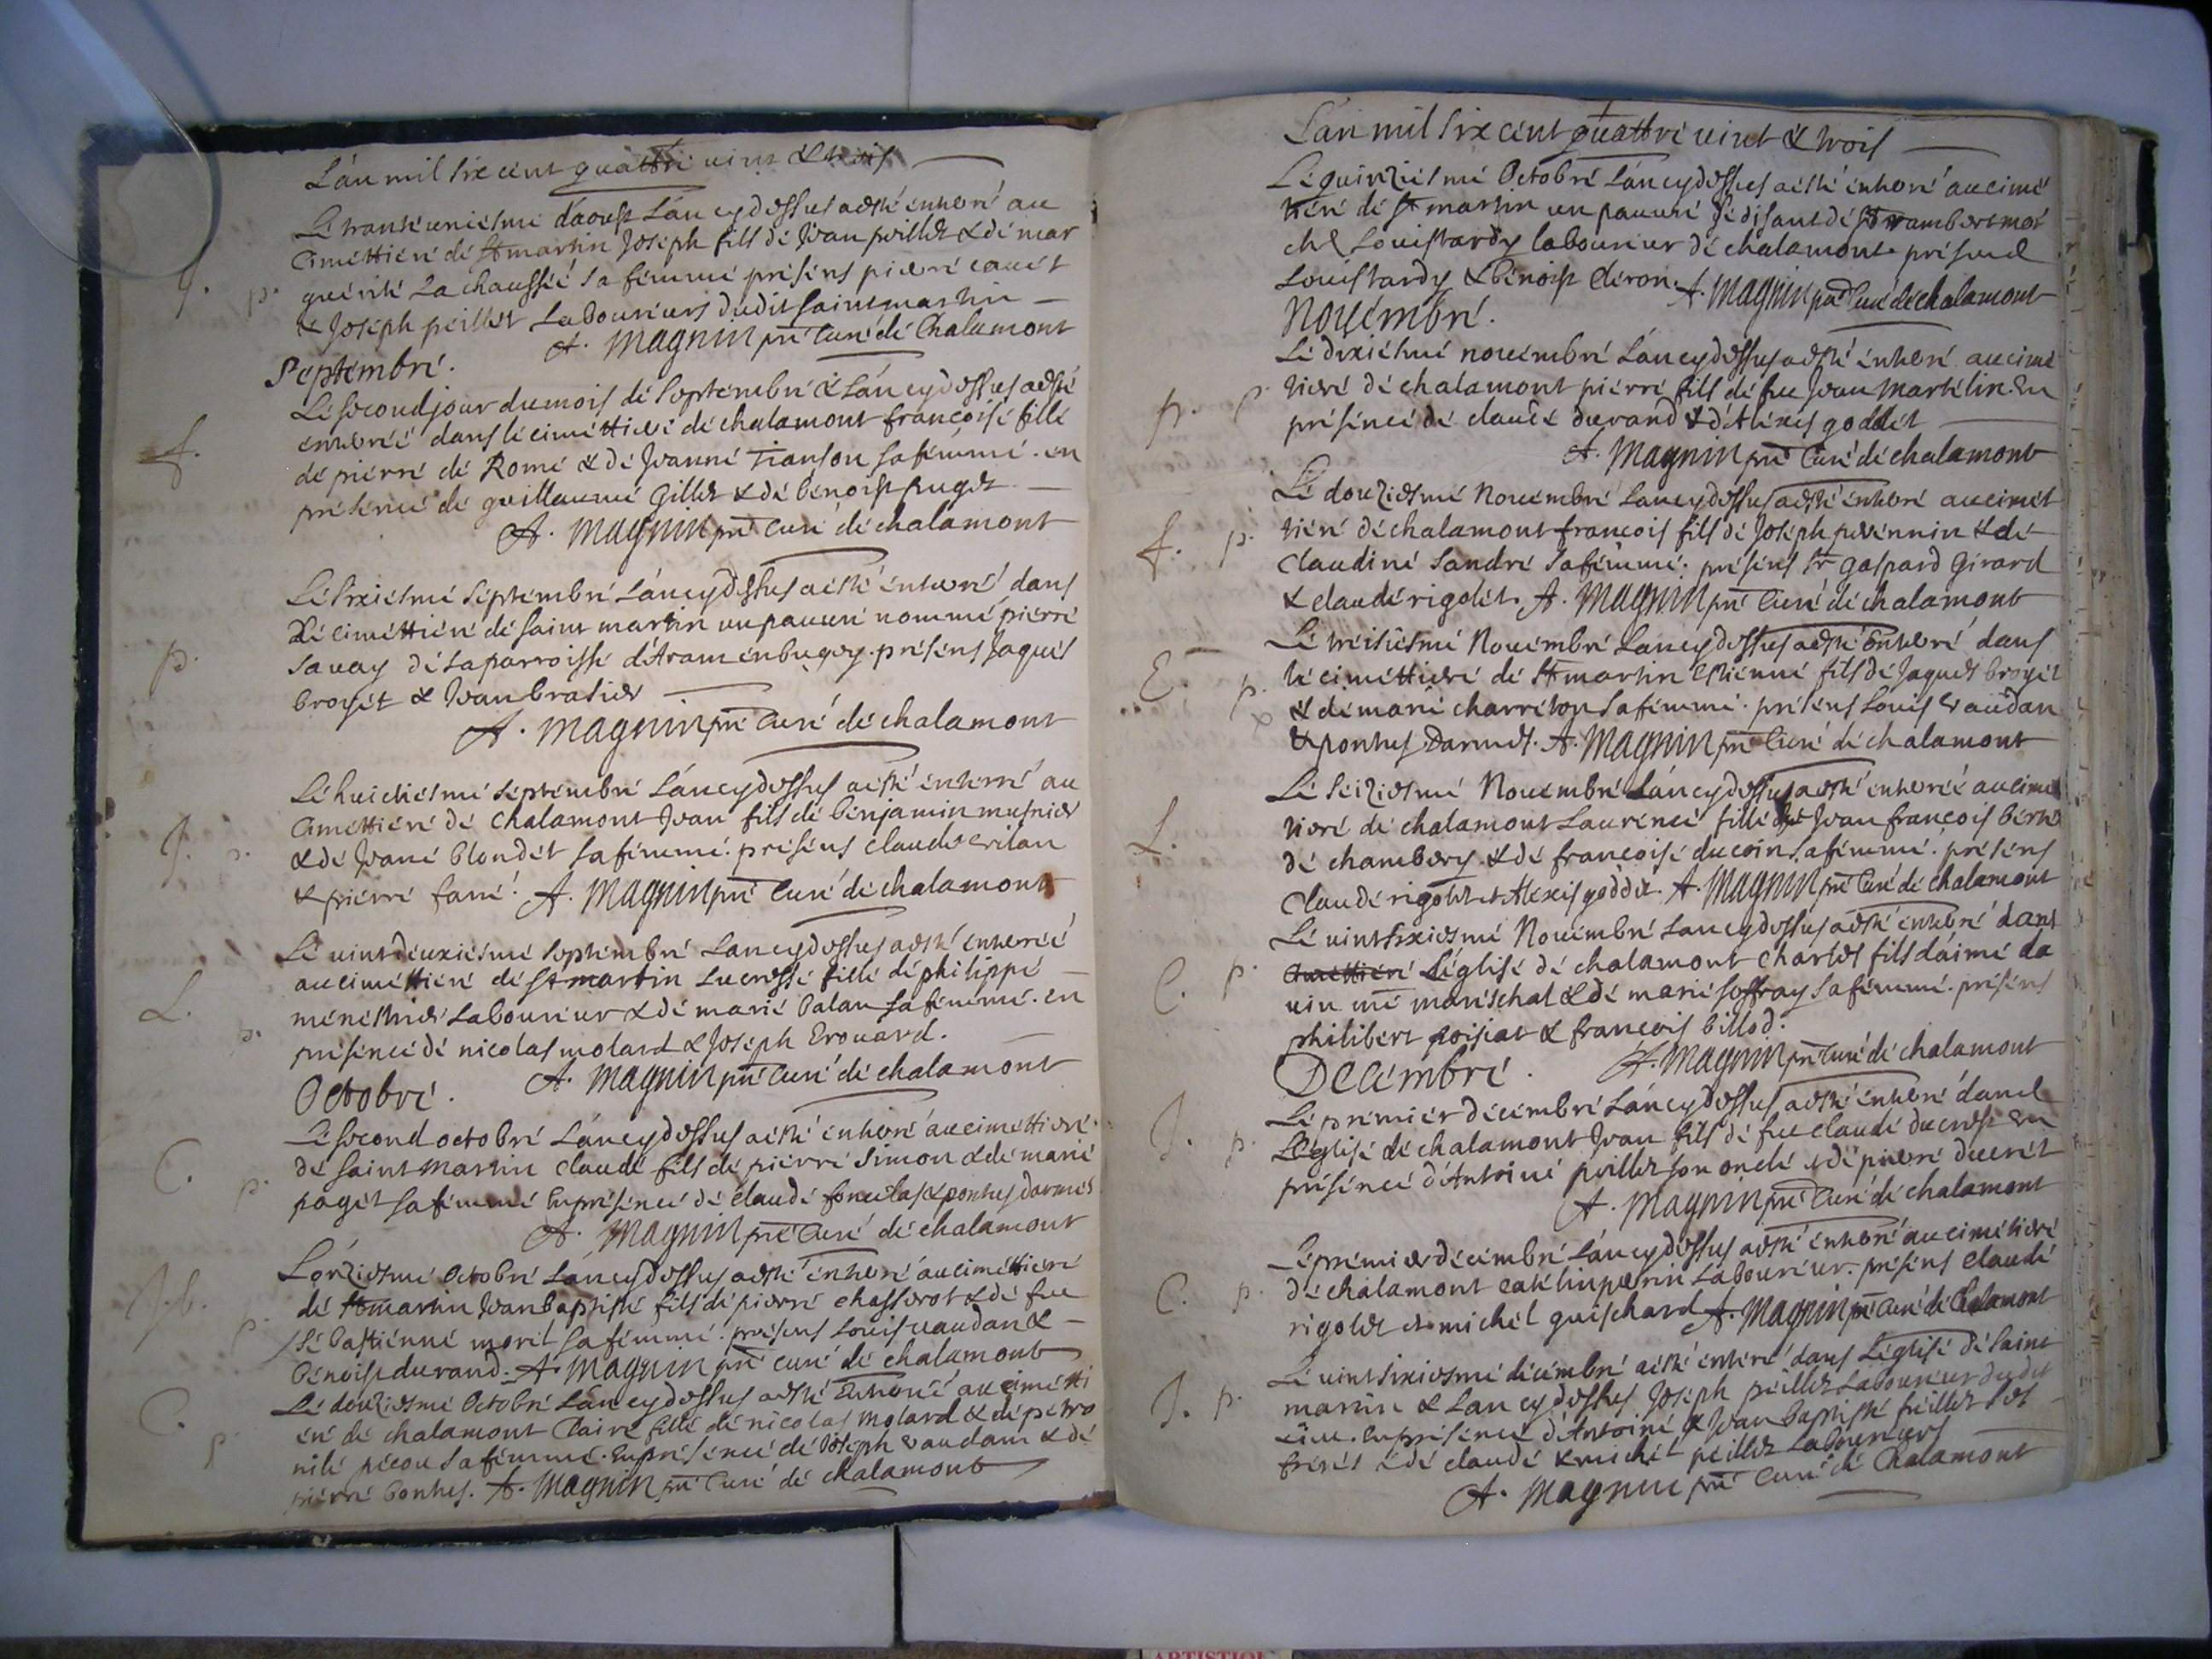 L'an mil six cent quattre vint & trois
Le trante uniesme d'aoust L'an cy dessus a esté enterré au
cimettiere de St martin Joseph fils de Jean peillet & de mar
J. p. guerite La chaussée sa femme présens pierre
& Joseph peillet Laboureurs dudit saint martin
A. Magnin pre Curé de Chalamont
Septembre.
Le second jour du mois de septembre & L'an cy dessus a esté
f. enterrée dans le cimettiere de chalamont françoise fille
de pierre de Rome & de Jeanne Tianson sa femme. en
présence de guillaume Gillet & de benoist puget
A. Magnin pre Curé de chalamont
Le sixiesme septembre L'an cy dessus a esté enterré dans
Le cimettiere de saint martin un pauvre nommé pierre
p. savay de la parroisse d'Aram en bugey. présens Jaques
broyet & Jean brasier
A. Magnin pre Curé de chalamont
Le huictiesme septembre L'an cy dessus a esté enterré au
cimettiere de chalamont Jean fils de benjamin musnier
J. & de Jeane blondet sa femme. présens claude
& pierre farre. A. Magnin pre Curé de chalamont
Le vint deuxiesme septembre L'an cy dessus a esté enterrée
au cimettiere de St martin Lucresse fille de philippe
L. menestrier Laboureur & de marie balan sa femme. en
p. présence de nicolas molard & Joseph Erouard.
A. Magnin pre Curé de chalamont
Octobre.
Le second octobre L'an cy dessus a esté enterré au cimettiere
C. de saint martin Claude fils de pierre Simon & de marie
p. paget sa femme En présence de claude & ponthus darmes
A. Magnin pre Curé de chalamont
L'onziesme Octobre L'an cy dessus a esté enterré au cimettiere
J.b. de St martin Jean baptiste fils de pierre chasserot & de feu
p. sébastienne morel sa femme. présens Louis vaudan &
benoist durand. A. Magnin pre curé de chalamont
Le douziesme Octobre L'an cy dessus a esté Enterrée au cimetti
C. ere de chalamont Claire fille de nicolas molard & de petro
p. nile pecou sa femme. En présence de Joseph vaudam & de
pierre bonhes. A. Magnin pre Curé de chalamont
L'an mil six cent quattre vint & trois
Le quinziesme Octobre L'an cy dessus a esté enterré au cime
tiere de St martin un pauvre se disant de St rambert
Louis tardy laboureur de chalamont. présens
Louis tardy & benoist deron. A. Magnin pre Curé de chalamont
Novembre.
Le dixiesme novembre L'an cy dessus a esté enterré au cime
p. p. tiere de chalamont pierre fils de feu Jean Martelin. En
présence de claude durand & d'Alexis goddet
A. Magnin pre Curé de chalamont
Le douziesme Novembre L'an cy dessus a esté enterré au cimet
f. p. tiere de chalamont françois fils de Joseph pevennin & de
Claudine Sandre sa femme. présens Sr gaspard Girard
& claude rigolet. A. Magnin pre Curé de chalamont
Le treisiesme Novembre L'an cy dessus a esté enterré dans
E. p. le cimettiere de St martin Estienne fils de Jaques broyet
& de marie charreton sa femme. présens Louis vaudan
& ponthus Darmes. A. Magnin pre Curé de chalamont
Le seiziesme Novembre L'an cy dessus a esté enterrée au cime
L. tiere de chalamont Laurence fille de Jean françois
de chambery & de françoise ducoin sa femme. présens
Claude rigolet et Alexis goddet. A. Magnin pre Curé de chalamont
Le vint sixiesme Novembre L'an cy dessus a esté enterré dans
C. p. cimettiere L'église de chalamont Charles fils d'aimé da
vin me mareschal & de marie soffray sa femme. présens
philibert poisat & françois billod.
A. Magnin pre Curé de chalamont
Decembre.
Le premier décembre L'an cy dessus a esté enterré dans
J. p. L'église de chalamont Jean fils de feu claude ducrest En
présence d'Antoine peillet son oncle & de pierre ducret
A. Magnin pre Curé de chalamont
Le premier décembre L'an cy dessus a esté enterré au cimetiere
C. p. de chalamont catelin perrin Laboureur. présens claude
rigolet et michel guischard A. Magnin pre Curé de Chalamont
Le vint sixiesme décembre a esté enterré dans L'église de saint
J. p. martin & L'an cy dessus Joseph peillet Laboureur dudit
lieu. En présence d'Antoine & Jean baptiste peillet ses
freres & de claude & michel peillet Laboureurs
A. Magnin pre Curé de Chalamont